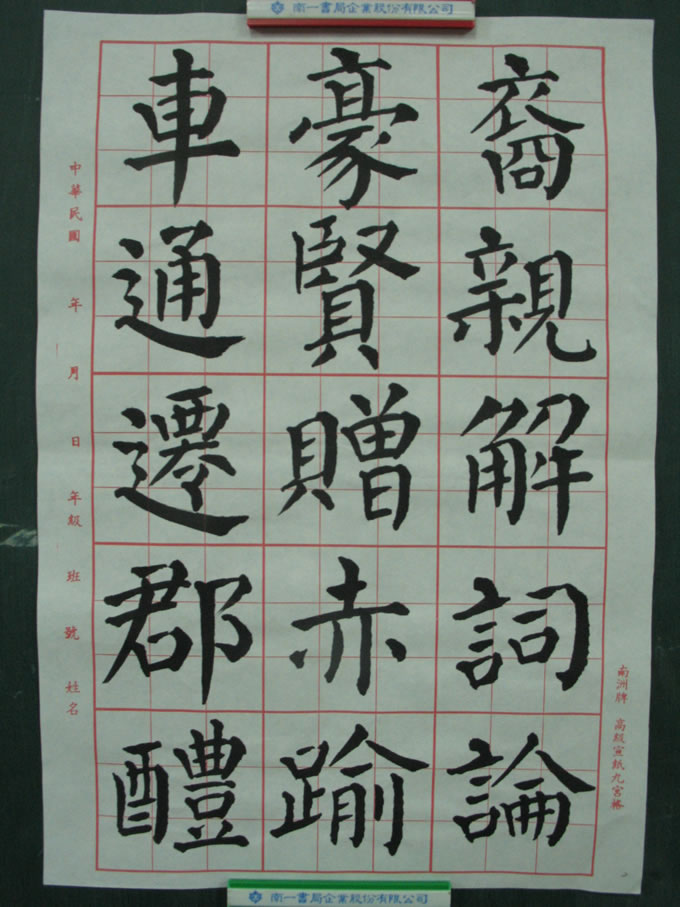 南一書局企業股份有限公司
裔親解詞論
豪賢贈赤踰
車通遷郡醴
中華民國 年 月 日 年級 班 號 姓名
南洲牌 高級宣紙九宮格
南一書局企業股份有限公司